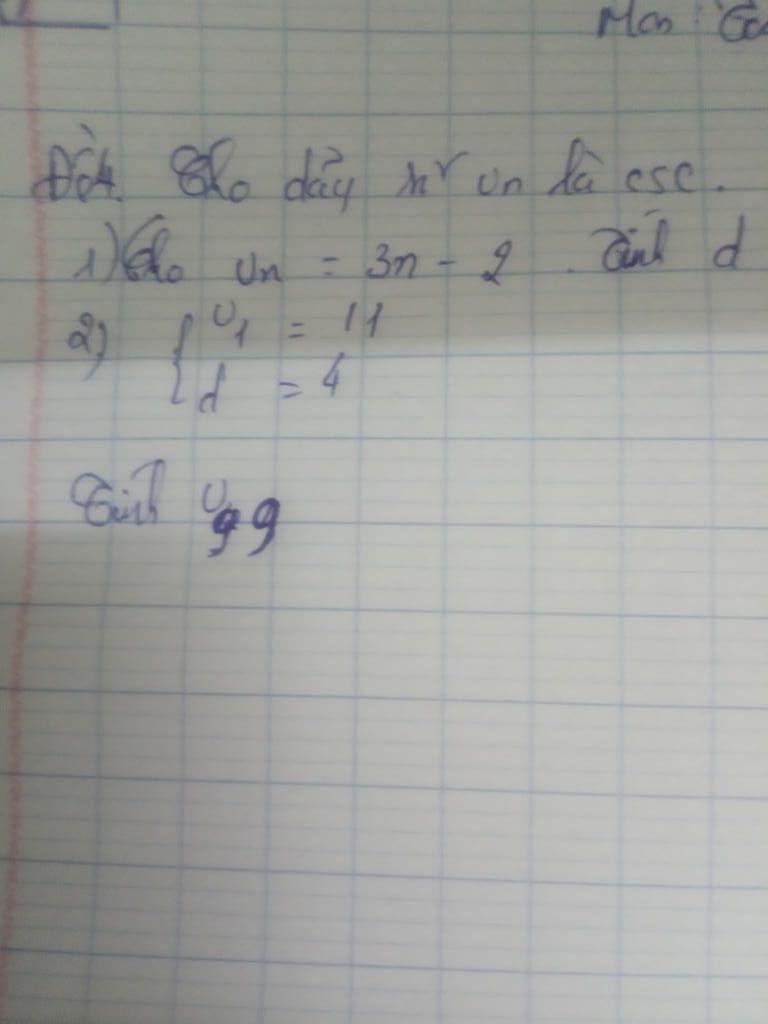 Môn:
Đề 4. Cho dãy số un là csc.
1) Cho un = 3n - 2. Tính d
2) { u1 = 11
d = 4
Tính u99